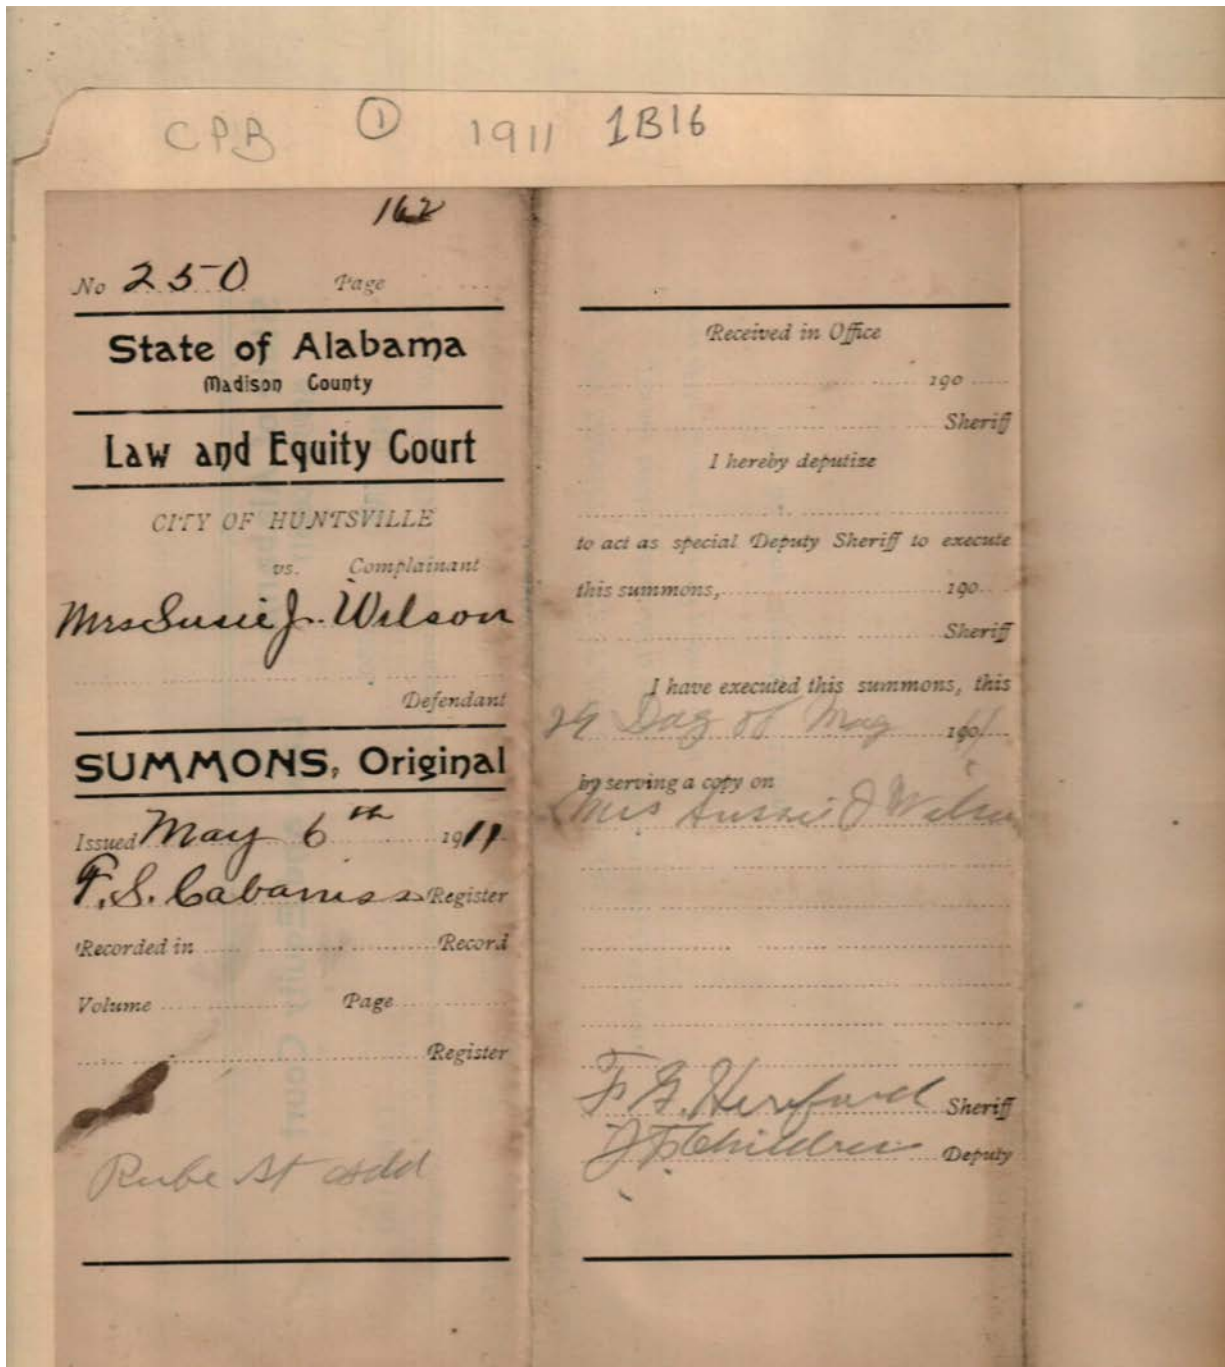 CPB ① 1911 1B16
162
No 250 Page
State of Alabama
Madison County
Law and Equity Court
CITY OF HUNTSVILLE
vs. Complainant
Mrs Susie J. Wilson
Defendant
SUMMONS, Original
Issued May 6th 1911
F.S. Cabaniss Register
Recorded in Record
Volume Page
Register
Rube St
Received in Office
190
Sheriff
I hereby deputize
to act as special Deputy Sheriff to execute
this summons, 190
Sheriff
I have executed this summons, this
29 Day of May 1911
by serving a copy on
Mrs Sussie J Wilson
F G. Hereford Sheriff
Deputy